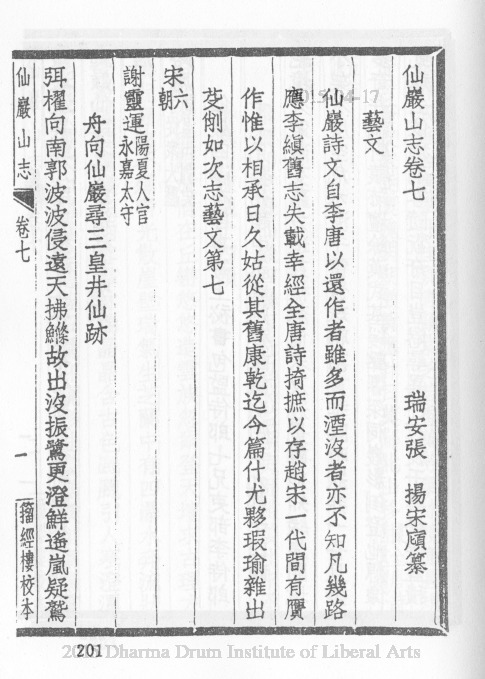 仙巖山志卷七
瑞安張　揚宋廎纂
藝文
仙巖詩文自李唐以還作者雖多而湮沒者亦不知凡幾路
應李縝舊志失載幸經全唐詩掎摭以存趙宋一代間有贋
作惟以相承日久姑從其舊康乾迄今篇什尤夥瑕瑜雜出
芟削如次志藝文第七
宋六朝
謝靈運陽夏人官永嘉太守
舟向仙巖尋三皇井仙跡
弭櫂向南郭波波侵遠天拂鰷故出沒振鷺更澄鮮遙嵐疑鷲
仙巖山志
卷七
一
籀經樓校本
201
Dharma Drum Institute of Liberal Arts